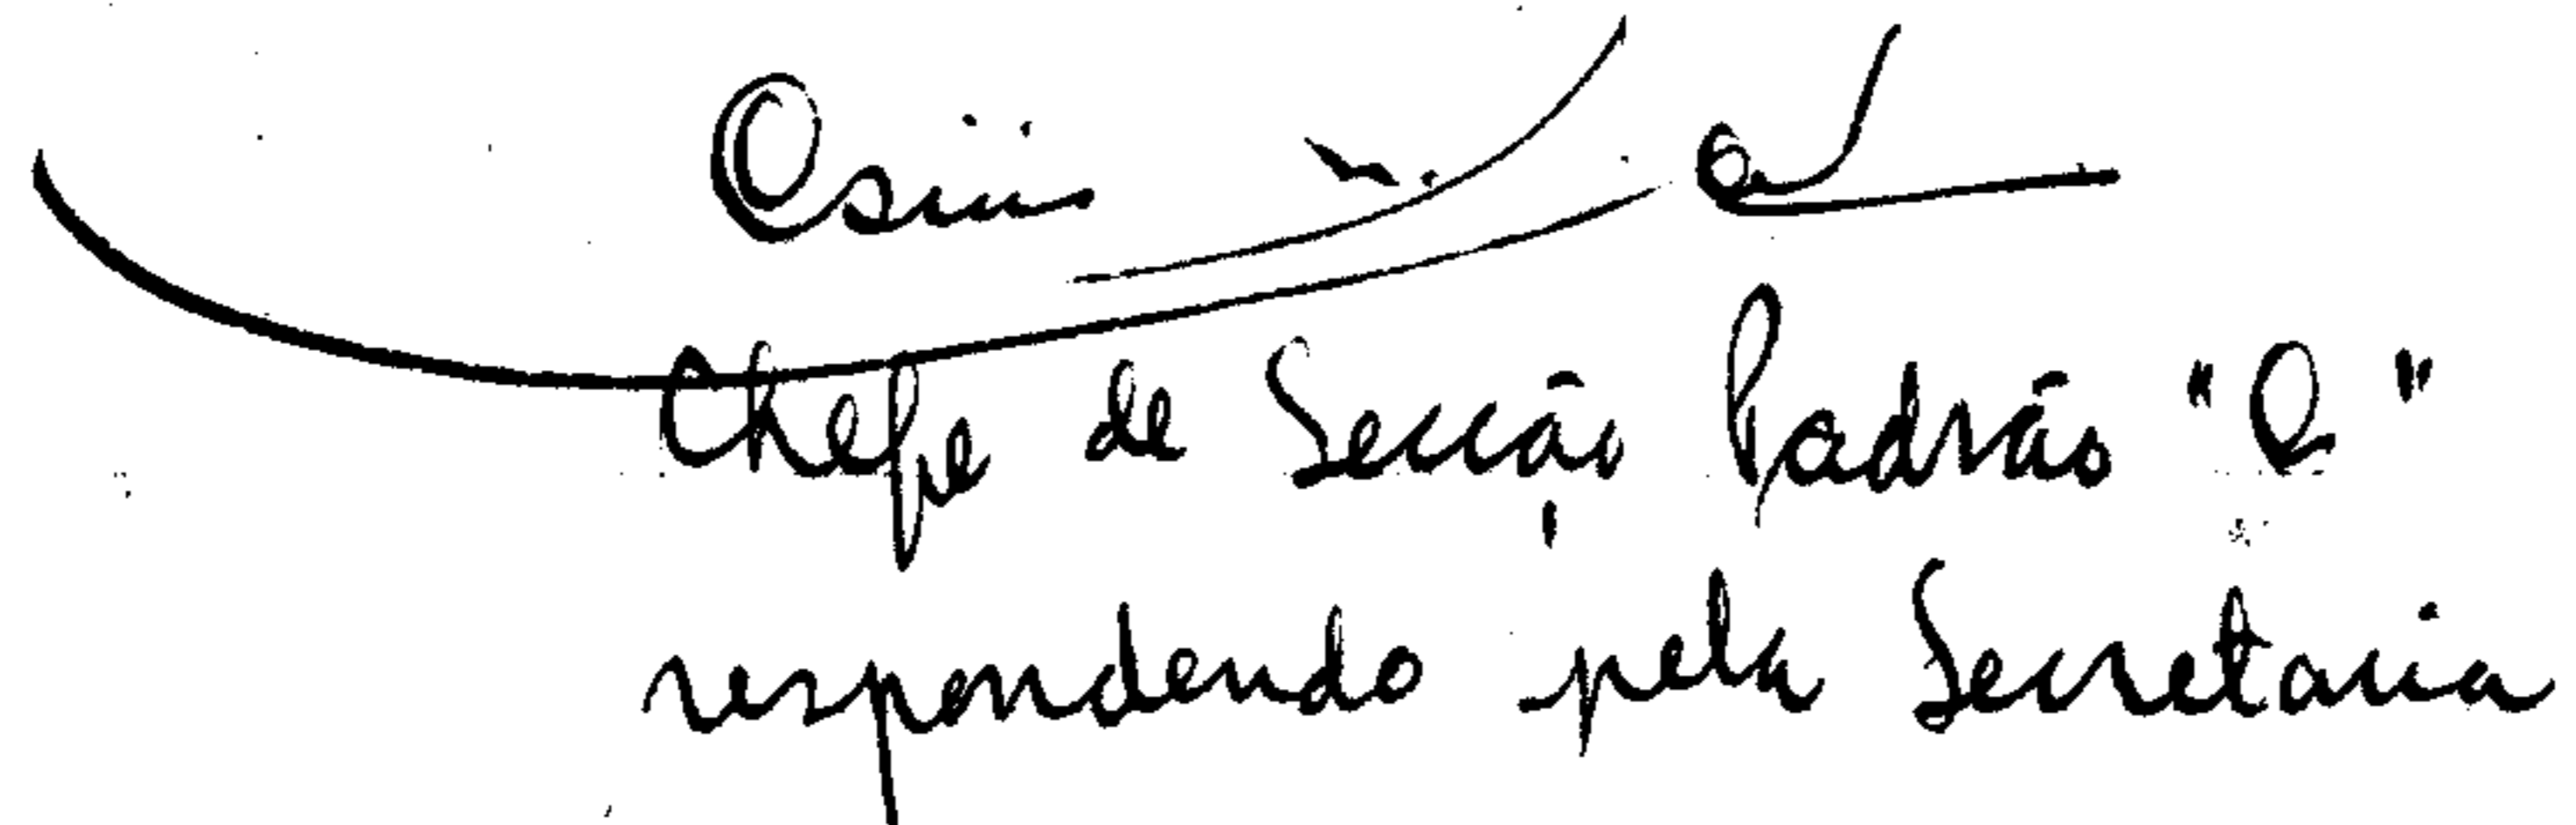 Osiris
Chefe de Secção Padrão "Q"
respondendo pela Secretaria